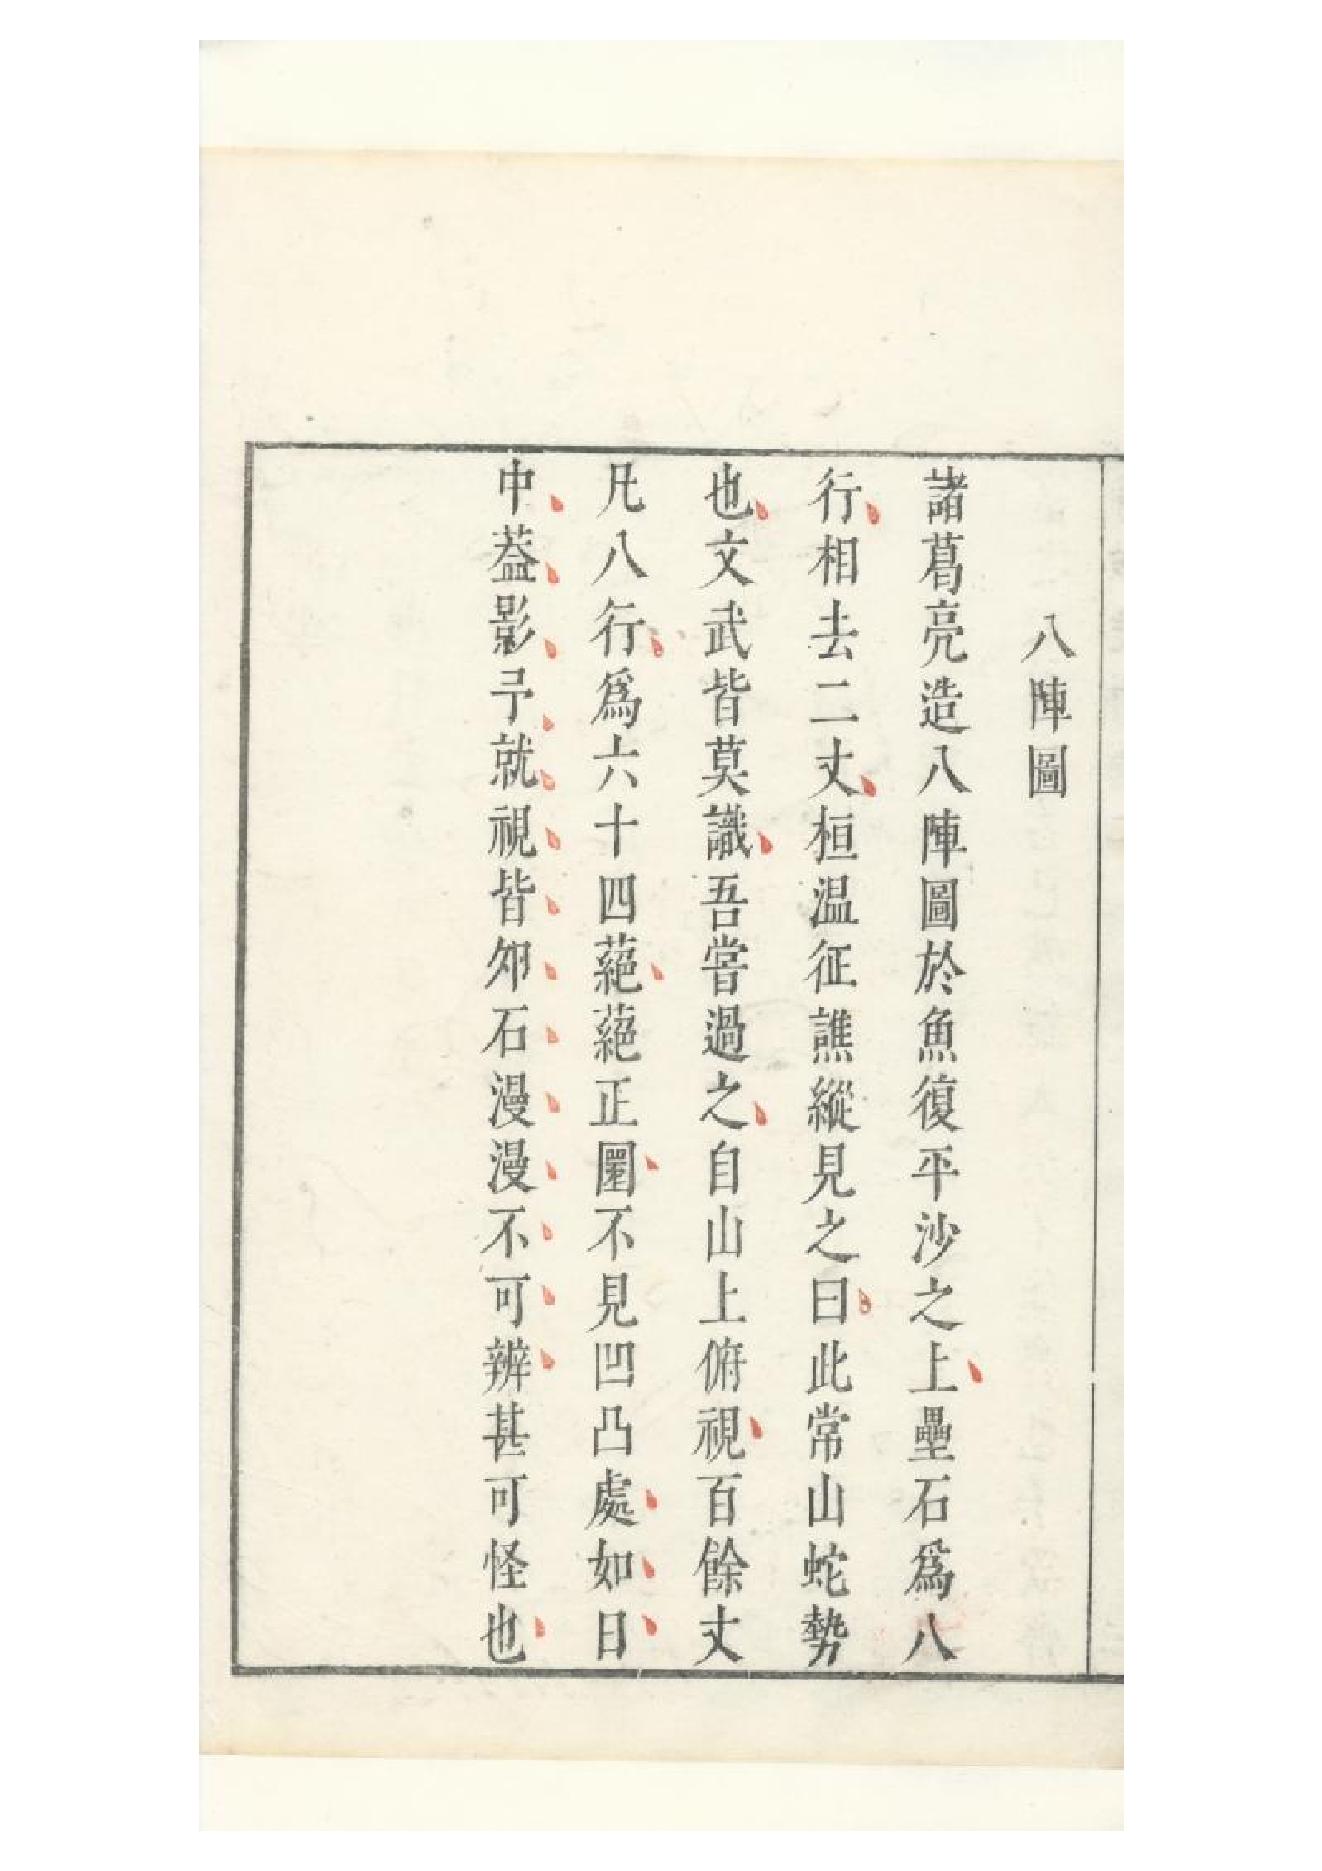 八陣圖
諸葛亮造八陣圖於魚復平沙之上壘石爲八
行相去二丈桓温征譙縱見之曰此常山蛇勢
也文武皆莫識吾嘗過之自山上俯視百餘丈
凡八行爲六十四蕝蕝正圜不見凹凸處如日
中葢影予就視皆夘石漫漫不可辨甚可怪也